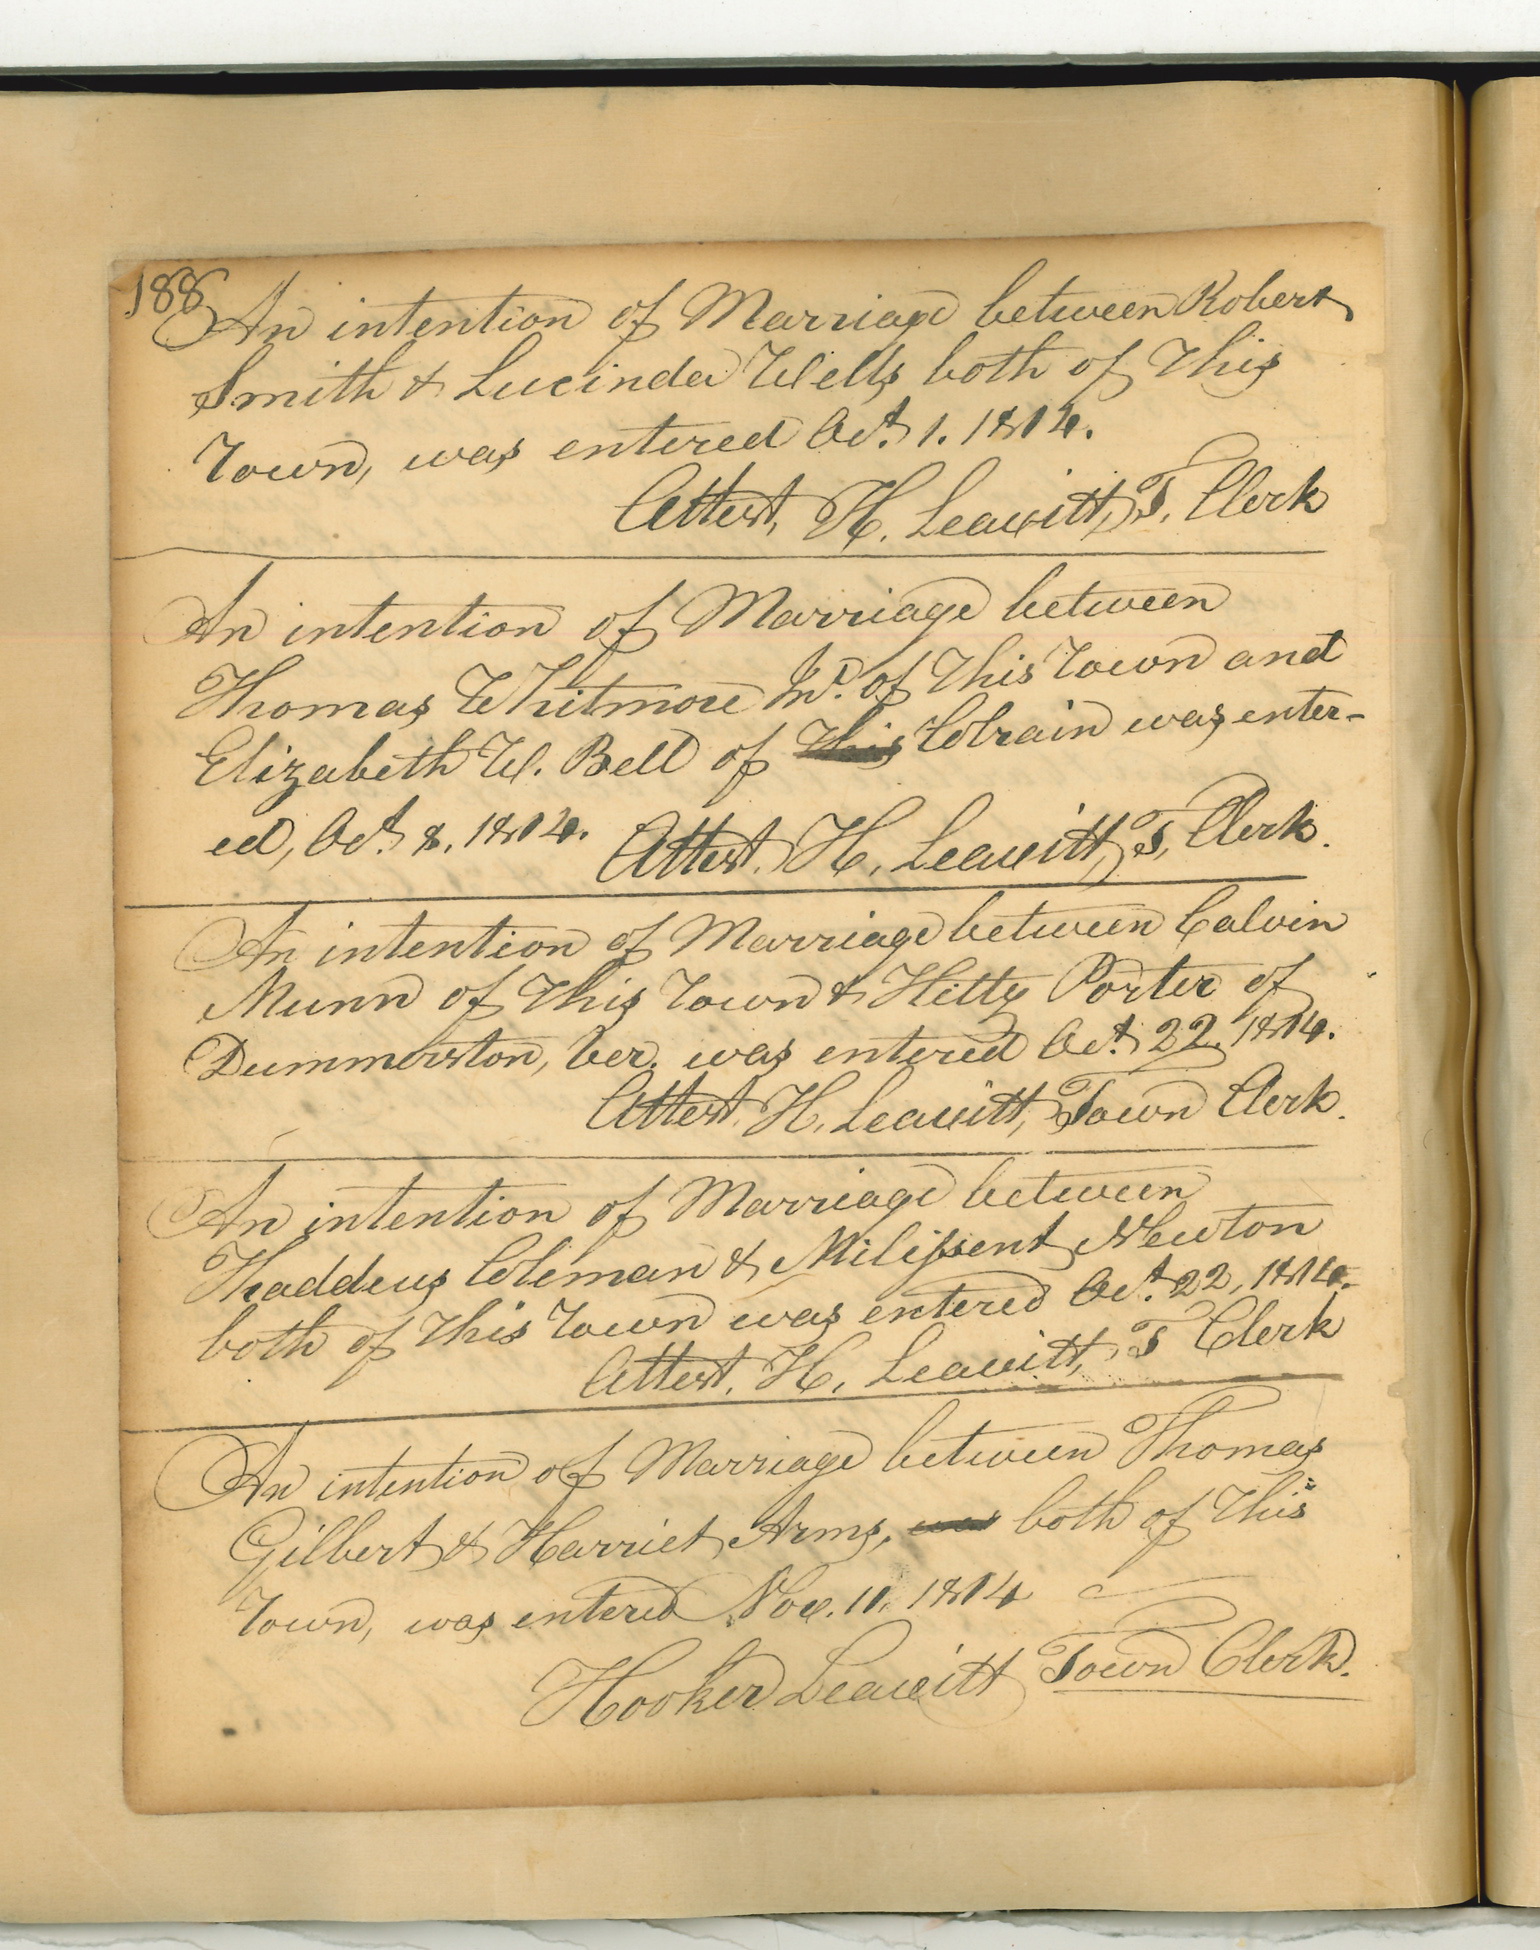 188
An intention of Marriage between Robert
Smith & Lucinda Wells both of this
Town, was entered Oct. 1. 1814.
Attest, H. Leavitt, T. Clerk
An intention of Marriage between
Thomas Whitmore Jnr. of this Town and
Elizabeth W. Bell of this Colrain was enter-
ed, Oct. 8. 1814. Attest. H. Leavitt, T. Clerk.
An intention of Marriage between Calvin
Munn of this Town & Hitty Porter of
Dummerston, Ver. was entered Oct. 22. 1814.
Attest. H. Leavitt, Town Clerk.
An intention of Marriage between
Thaddeus Coleman & Milissent Newton
both of this Town was entered Oct. 22, 1814.
Attest. H. Leavitt, T Clerk
An intention of Marriage between Thomas
Gilbert & Harriet Arms, was both of this
Town, was entered Nov. 11. 1814
Hooker Leavitt Town Clerk.